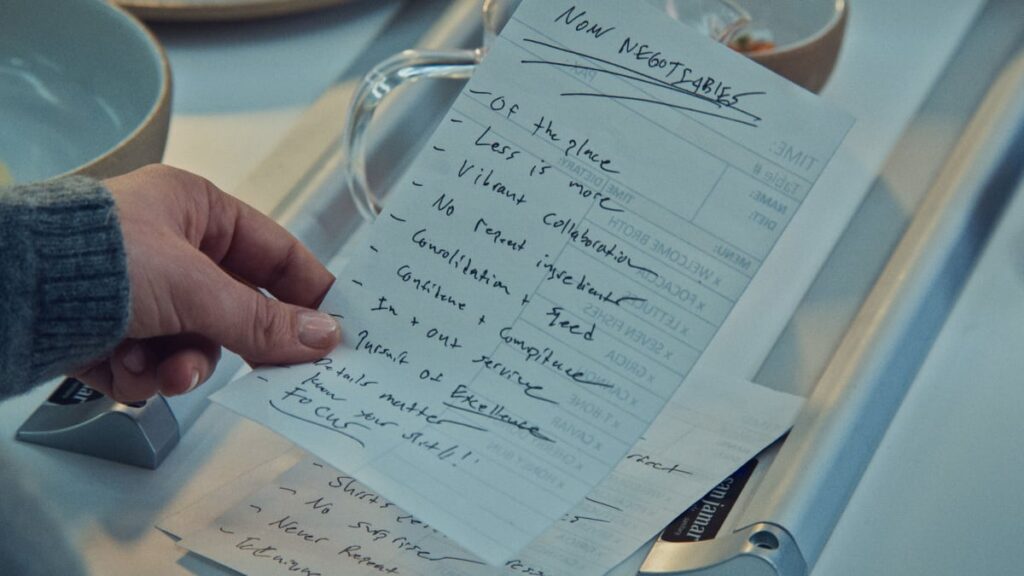 NON NEGOTIABLES
- Of the place
- Less is more
- Vibrant collaboration
- No repeat ingredients
- Consolidation + Speed
- Confidence + Competence
- In + out service
- Pursuit of Excellence
- Details matter
- Know your shit!!
FOCUS
TIME:
Table #
NAME:
DIET:
TIME DIETARY:
MENU:
x WELCOME BROTH
x FOCACCIA
x LETTUCE
x SEVEN FISHES
x GRICIA
x T BONE
x CAVIAR
x HONEY BUN
- No surprises
- Never Repeat
san jamar